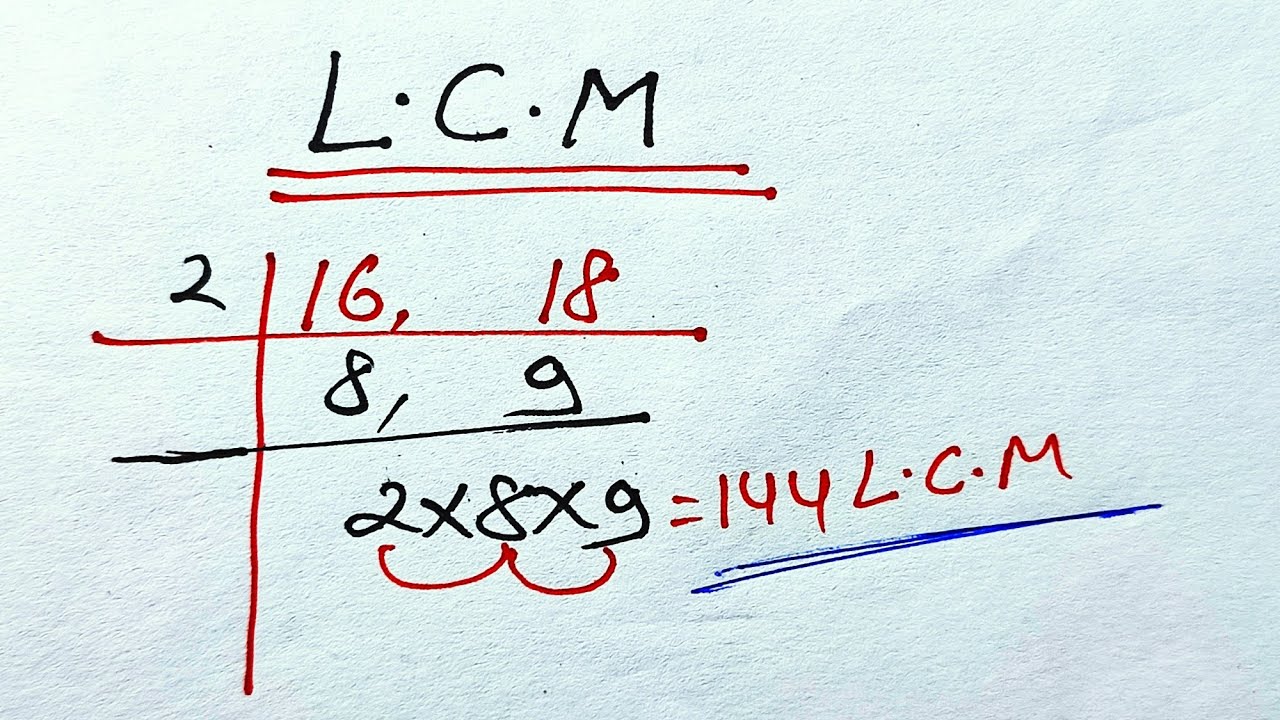 L.C.M
2 16, 18
8, 9
2×8×9=144 L.C.M